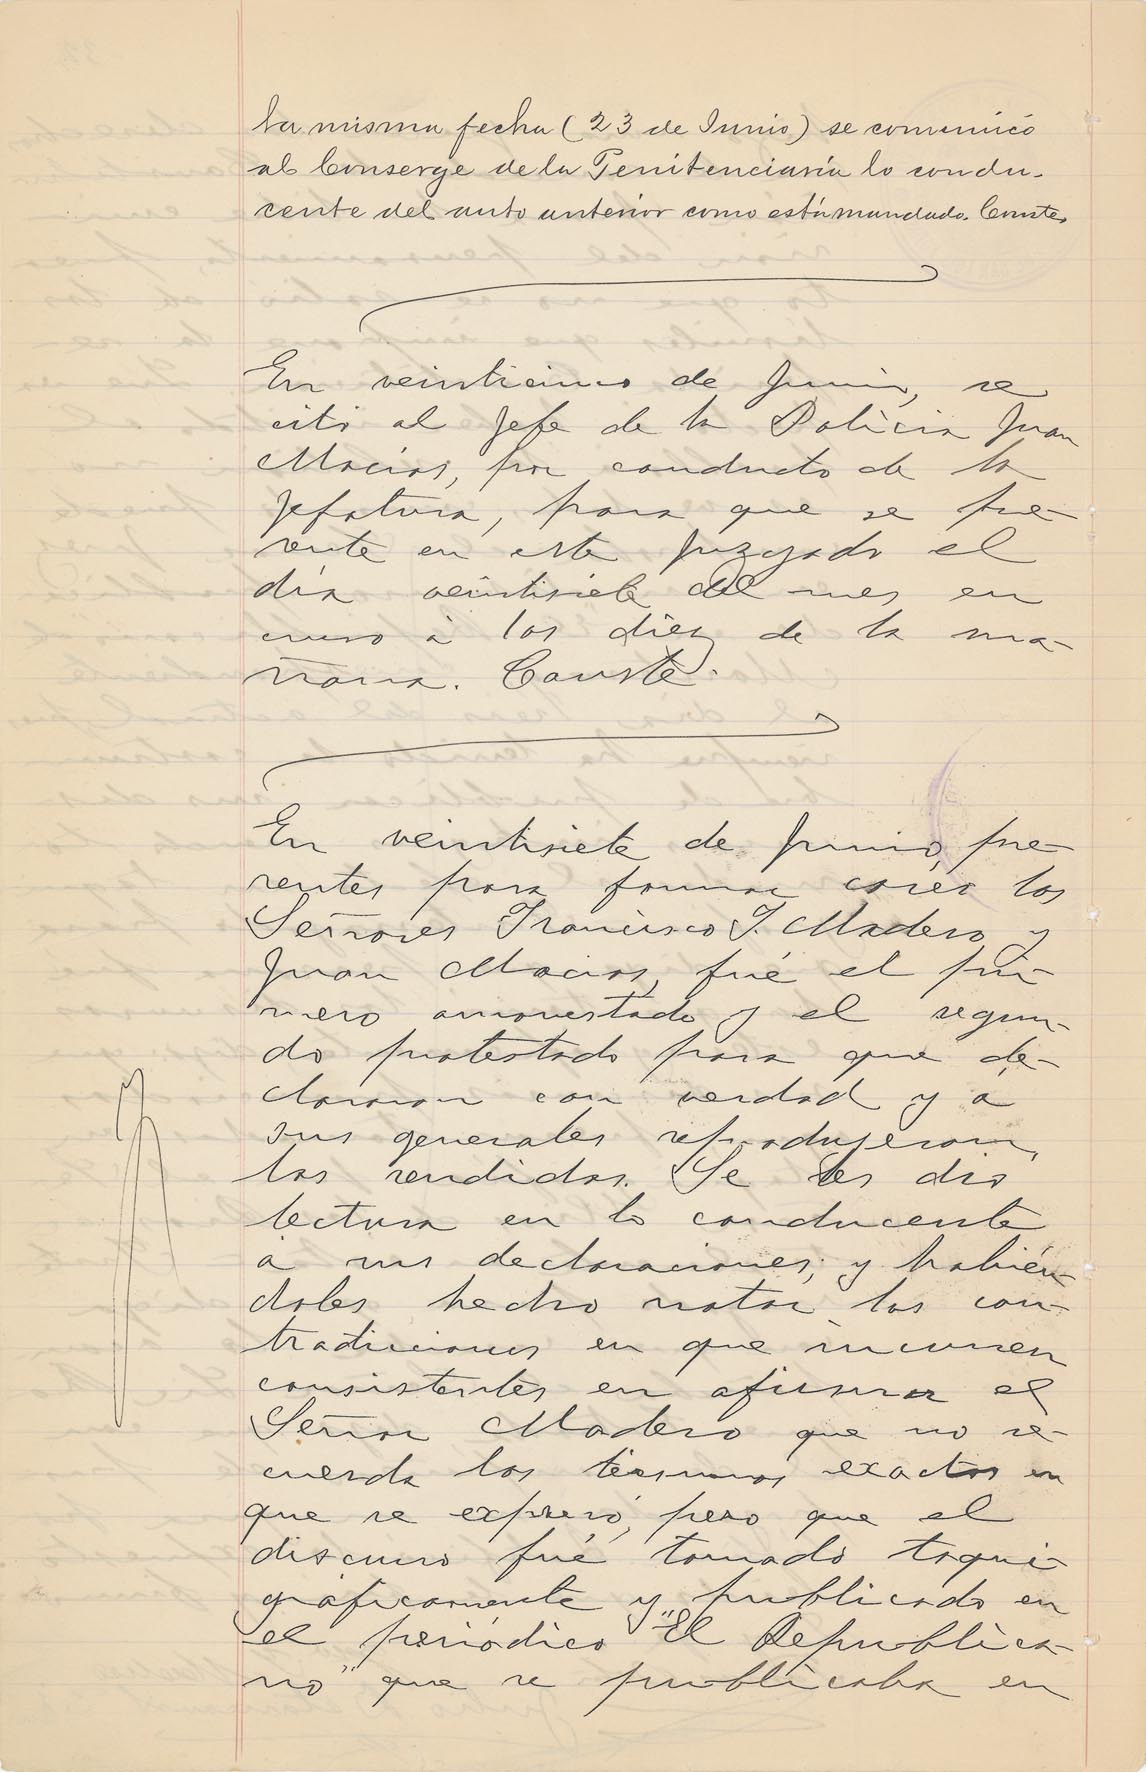 la misma fecha (23 de Junio) se comunicó
al Conserge de la Penitenciaría lo condu-
cente del auto anterior como está mandado. Conste.
En veinticinco de Junio, se
citó al Jefe de la Policia Juan
Macias, por conducto de la
Jefatura, para que se pre-
sente en este Juzgado el
día veintisiete del mes en
curso á las diez de la ma-
ñana. Conste.
En veintisiete de Junio, pre-
sentes para formar caréo los
Señores Francisco I. Madero y
Juan Macias, fué el pri-
mero amonestado y el segun-
do protestado para que de-
clararan con verdad y á
sus generales reprodujeron
las rendidas. Se les dió
lectura en lo conducente
á sus declaraciones; y habién-
doles hecho notar las con-
tradicciones en que incurren
consistentes en afirmar el
Señor Madero que no re-
cuerda los términos exactos en
que se expresó, pero que el
discurso fué tomado taqui-
gráficamente y publicado en
el periódico "El Republica-
no" que se publicaba en